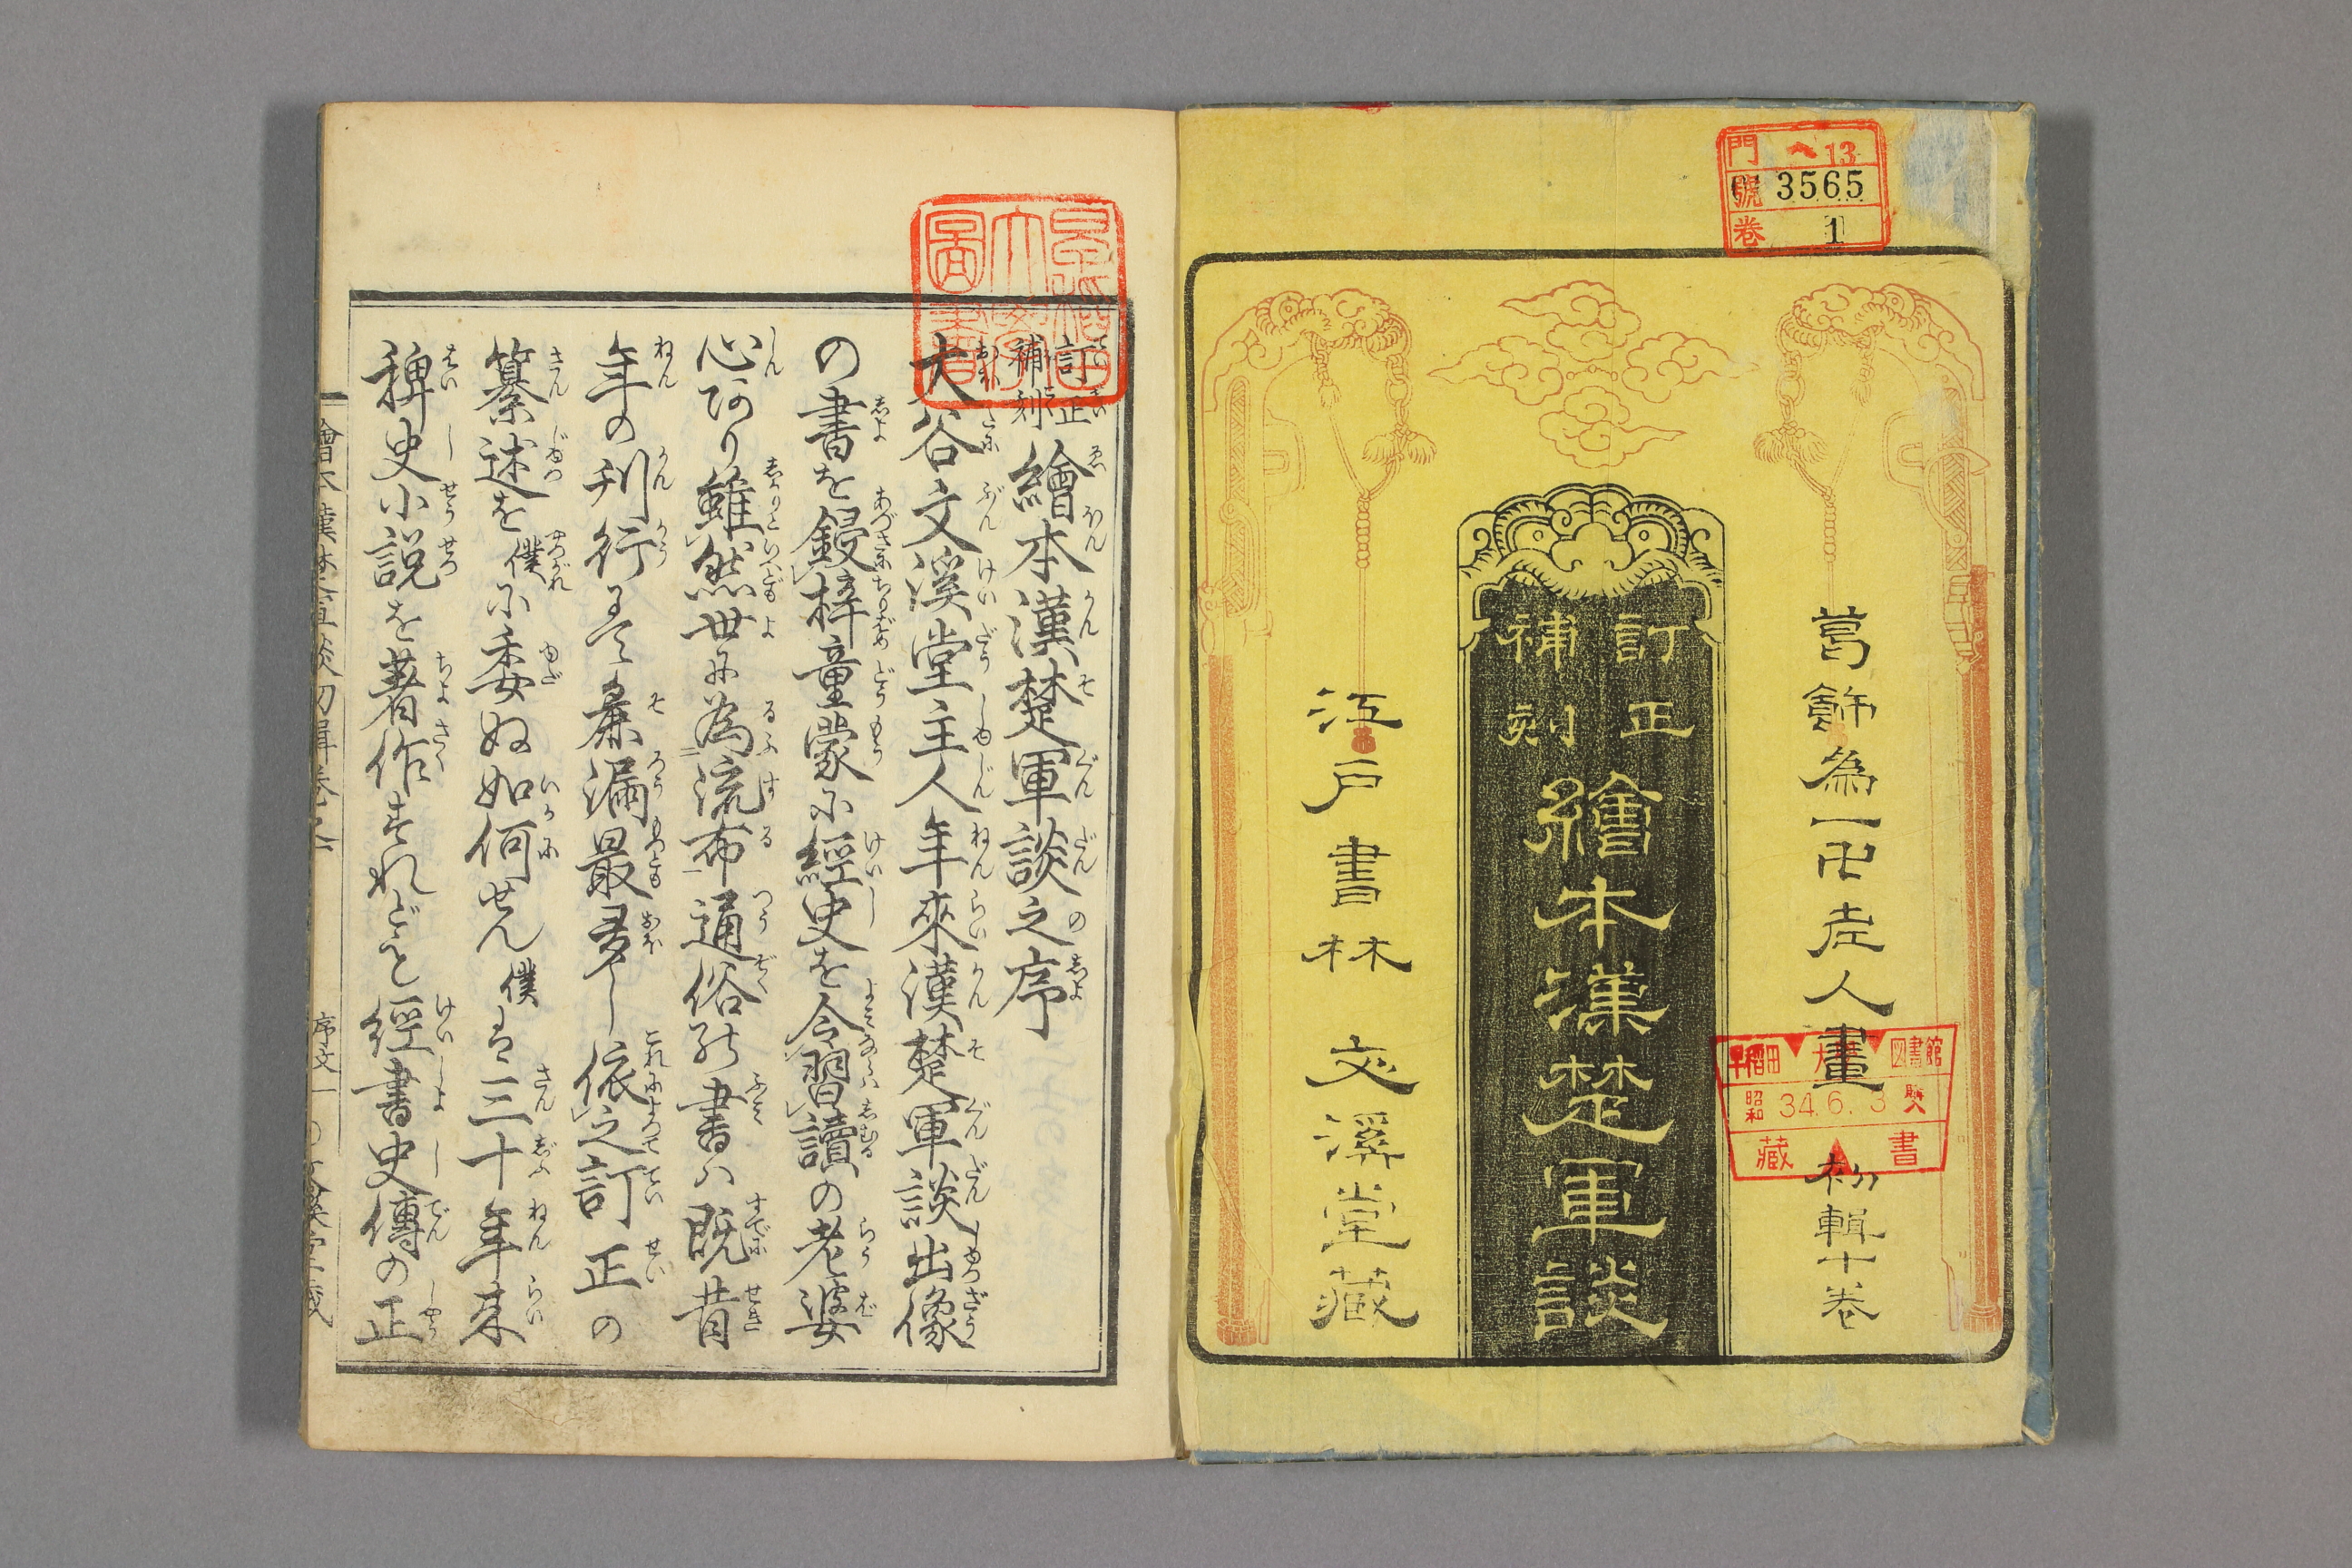 門 ヘ 13
號 3565
卷 1
葛飾為一卍老人畫
初輯十卷
訂正
補刻
繪本漢楚軍談
江戸書林 文溪堂藏
早稲田大學圖書館
昭和 34.6.3
藏書
訂正
補刻
繪本漢楚軍談之序
大谷文溪堂主人年來漢楚軍談出像
の書を鋟梓童蒙に經史を令習讀の老婆
心あり雖然世に為流布通俗の書ハ既昔
年の刊行にて麁漏最多し依之訂正の
纂述を僕に委ぬ如何せん僕は三十年来
稗史小説を著作すれども經書史傳の正
序文一